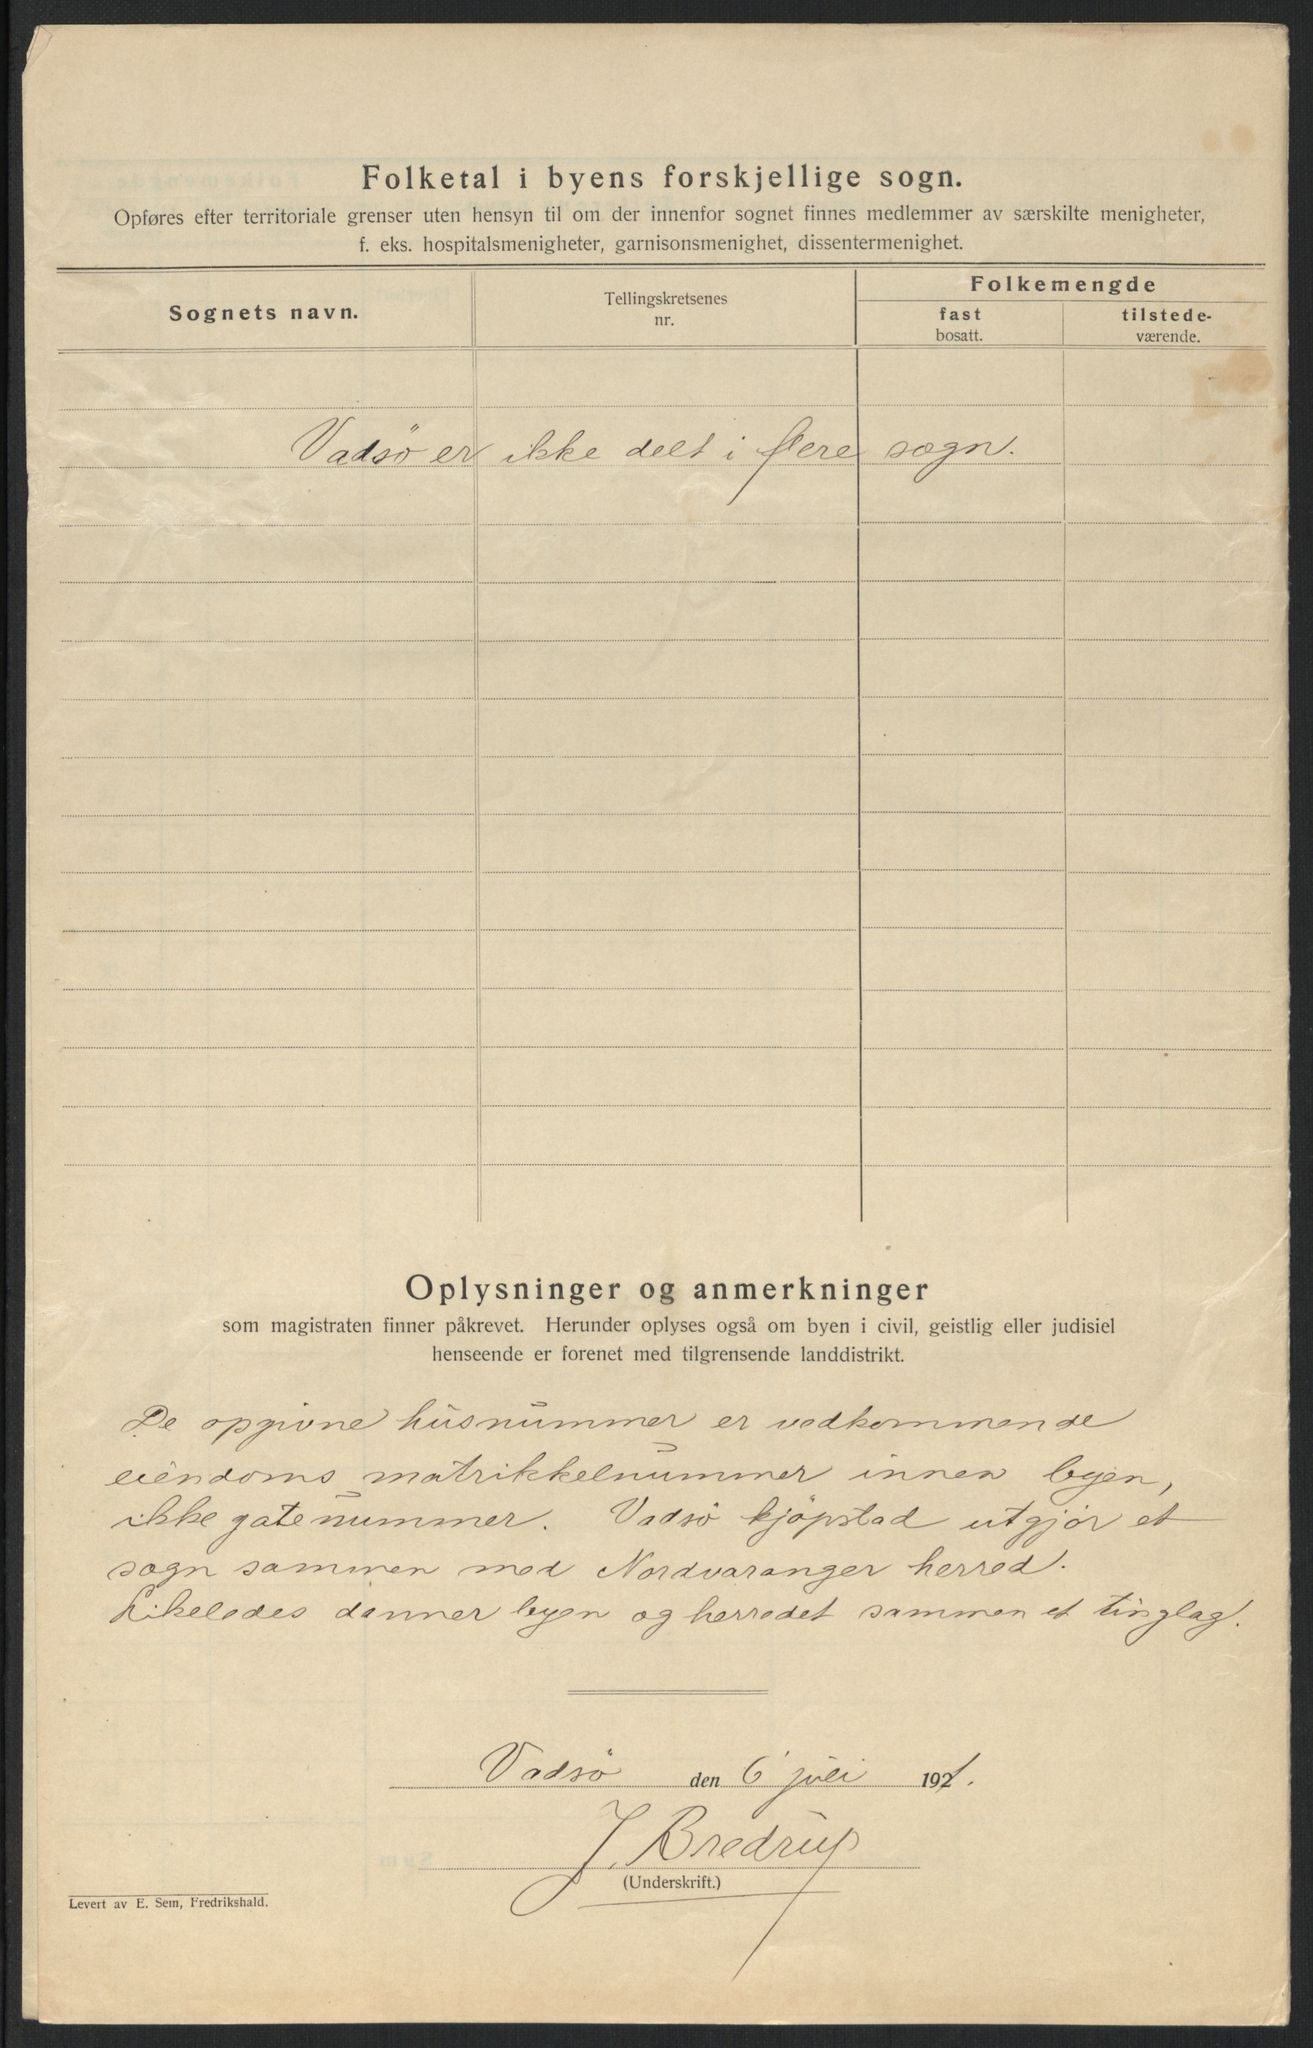 Folketal i byens forskjellige sogn.
Opføres efter territoriale grenser uten hensyn til om der innenfor sognet finnes medlemmer av særskilte menigheter,
f. eks. hospitalsmenigheter, garnisonsmenighet, dissentermenighet.
Sognets navn.
Tellingskretsenes
nr.
Folkemengde
fast
bosatt.
tilstede-
værende.
Vadsö er ikke delt i flere sogn.
Oplysninger og anmerkninger
som magistraten finner påkrevet. Herunder oplyses også om byen i civil, geistlig eller judisiel
henseende er forenet med tilgrensende landdistrikt.
De opgivne husnummer er vedkommende
eiendoms matrikkelnummer innen byen,
ikke gatenummer. Vadsö kjöpstad utgjör et
sogn sammen med Nordvaranger herred.
Likeledes danner byen og herredet sammen et tinglag.
Vadsö den 6 juli 1921.
J. Bredrup
(Underskrift.)
Levert av E. Sem, Fredrikshald.